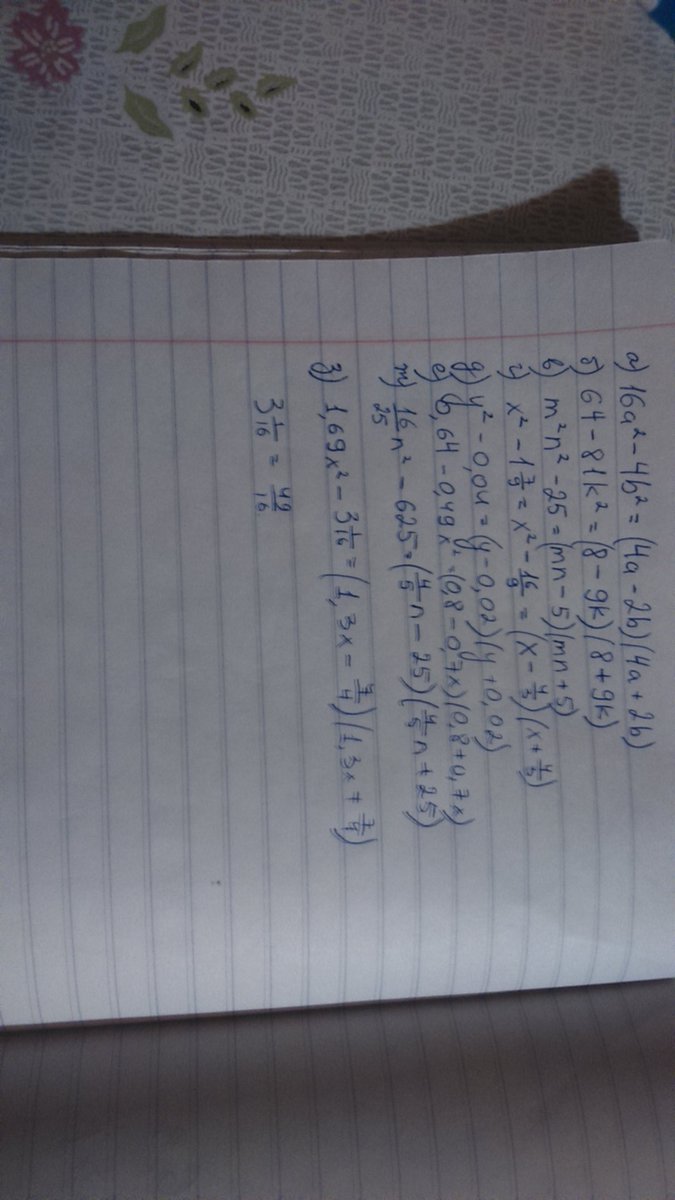 а) 16a² - 4b² = (4a - 2b)(4a + 2b)
б) 64 - 81k² = (8 - 9k)(8 + 9k)
в) m²n² - 25 = (mn - 5)(mn + 5)
г) x² - 1 7/9 = x² - 16/9 = (x - 4/3)(x + 4/3)
д) y² - 0,04 = (y - 0,02)(y + 0,02)
е) 0,64 - 0,49x² = (0,8 - 0,7x)(0,8 + 0,7x)
ж) 16/25 n² - 625 = (4/5 n - 25)(4/5 n + 25)
з) 1,69x² - 3 1/16 = (1,3x - 7/4)(1,3x + 7/4)
3 1/16 = 49/16